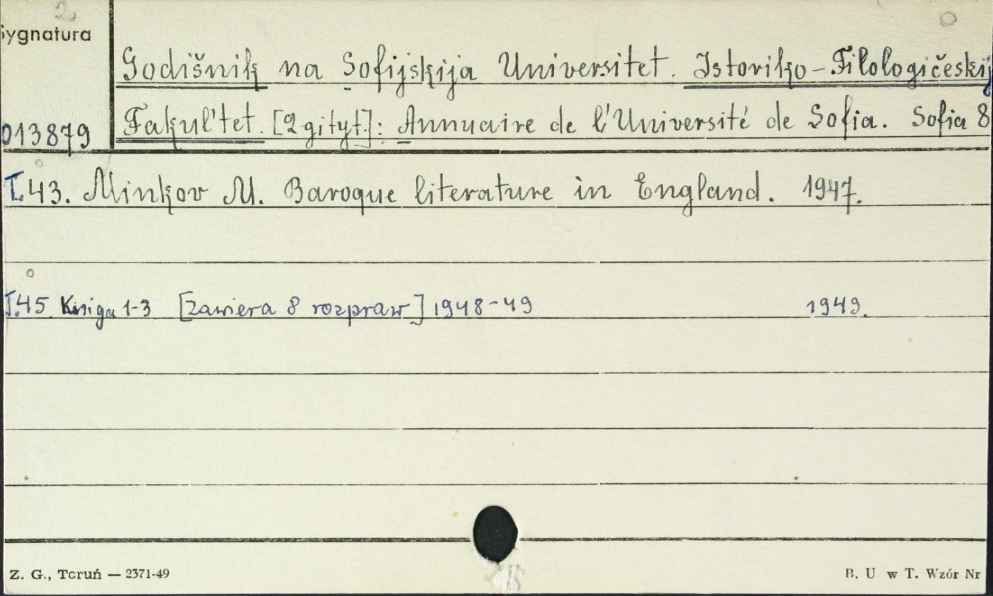 2.
Sygnatura
Godišnik na Sofijskija Universitet. Istoriko-Filologičeskij
013879 Fakul'tet. [2 gi tyt.]: Annuaire de l'Université de Sofia. Sofia 8
T.43. Minkov M. Baroque literature in England. 1947.
T.45 Kniga 1-3 [zawiera 8 rozpraw] 1948-49 1949.
Z. G., Toruń — 2371-49 B. U w T. Wzór Nr